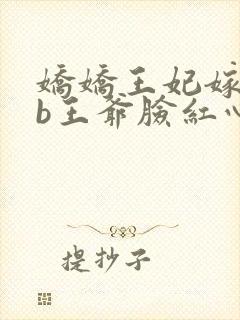 嬌嬌王妃嫁
b王爺臉紅心
提抄子